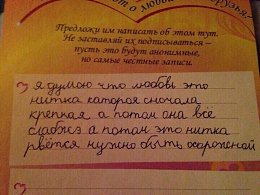 т о любой
друзья?
Предложи им написать об этом тут.
Не заставляй их подписываться —
пусть это будут анонимные,
но самые честные записи.
Я думою что любовь это
нитка каторая сночала
крепкая а потом она всё
слабеэ а потам это нитка
рвётся нужно быть осорожной